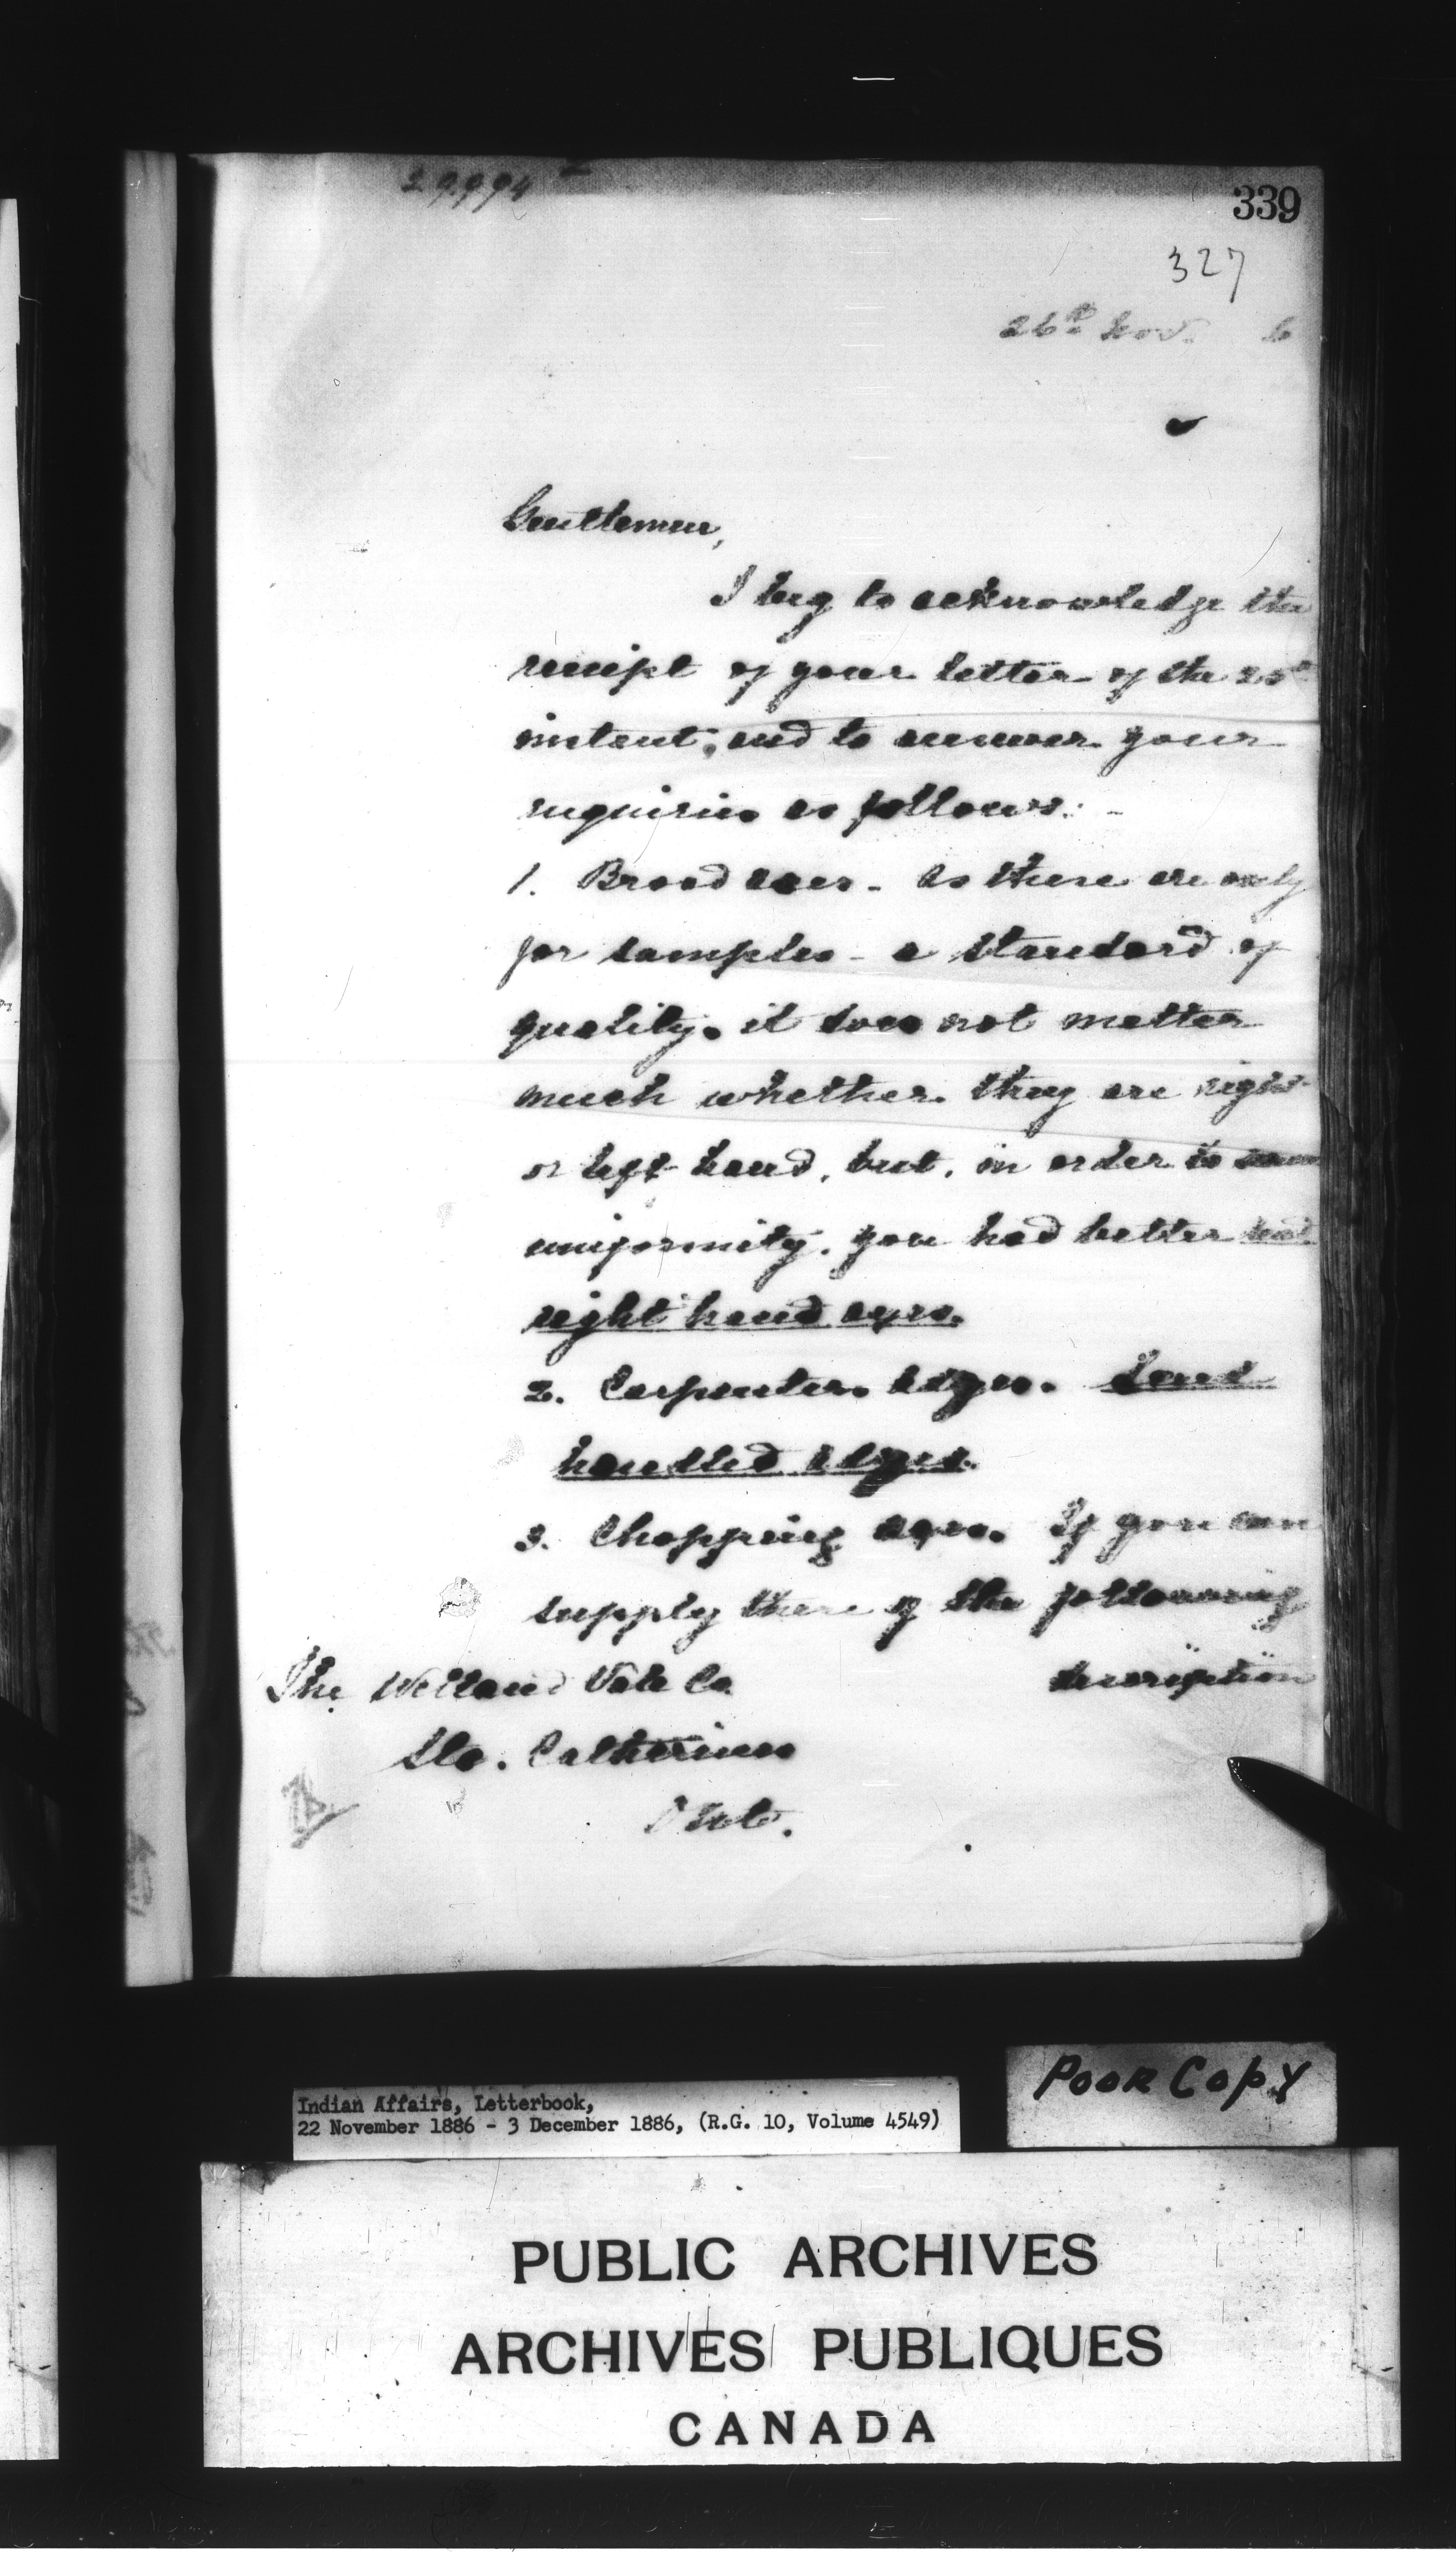 29994
339
327
26th Nov. 6
Gentlemen,
I beg to acknowledge the
receipt of your letter of the 20th
instant, and to answer your
inquiries as follows: -
1. Broad axes - As these are only
for samples - a standard of
quality. it does not matter
much whether they are right
or left hand, but, in order to
uniformity, you had better send
right hand axes.
2. Carpenters adzes. Send
handled adzes.
3. Chopping axes. If you can
supply these of the following
description
The Welland Vale Co.
Ste. Catherines
Onto.
Poor Copy
Indian Affairs, Letterbook,
22 November 1886 - 3 December 1886, (R.G. 10, Volume 4549)
PUBLIC ARCHIVES
ARCHIVES PUBLIQUES
CANADA